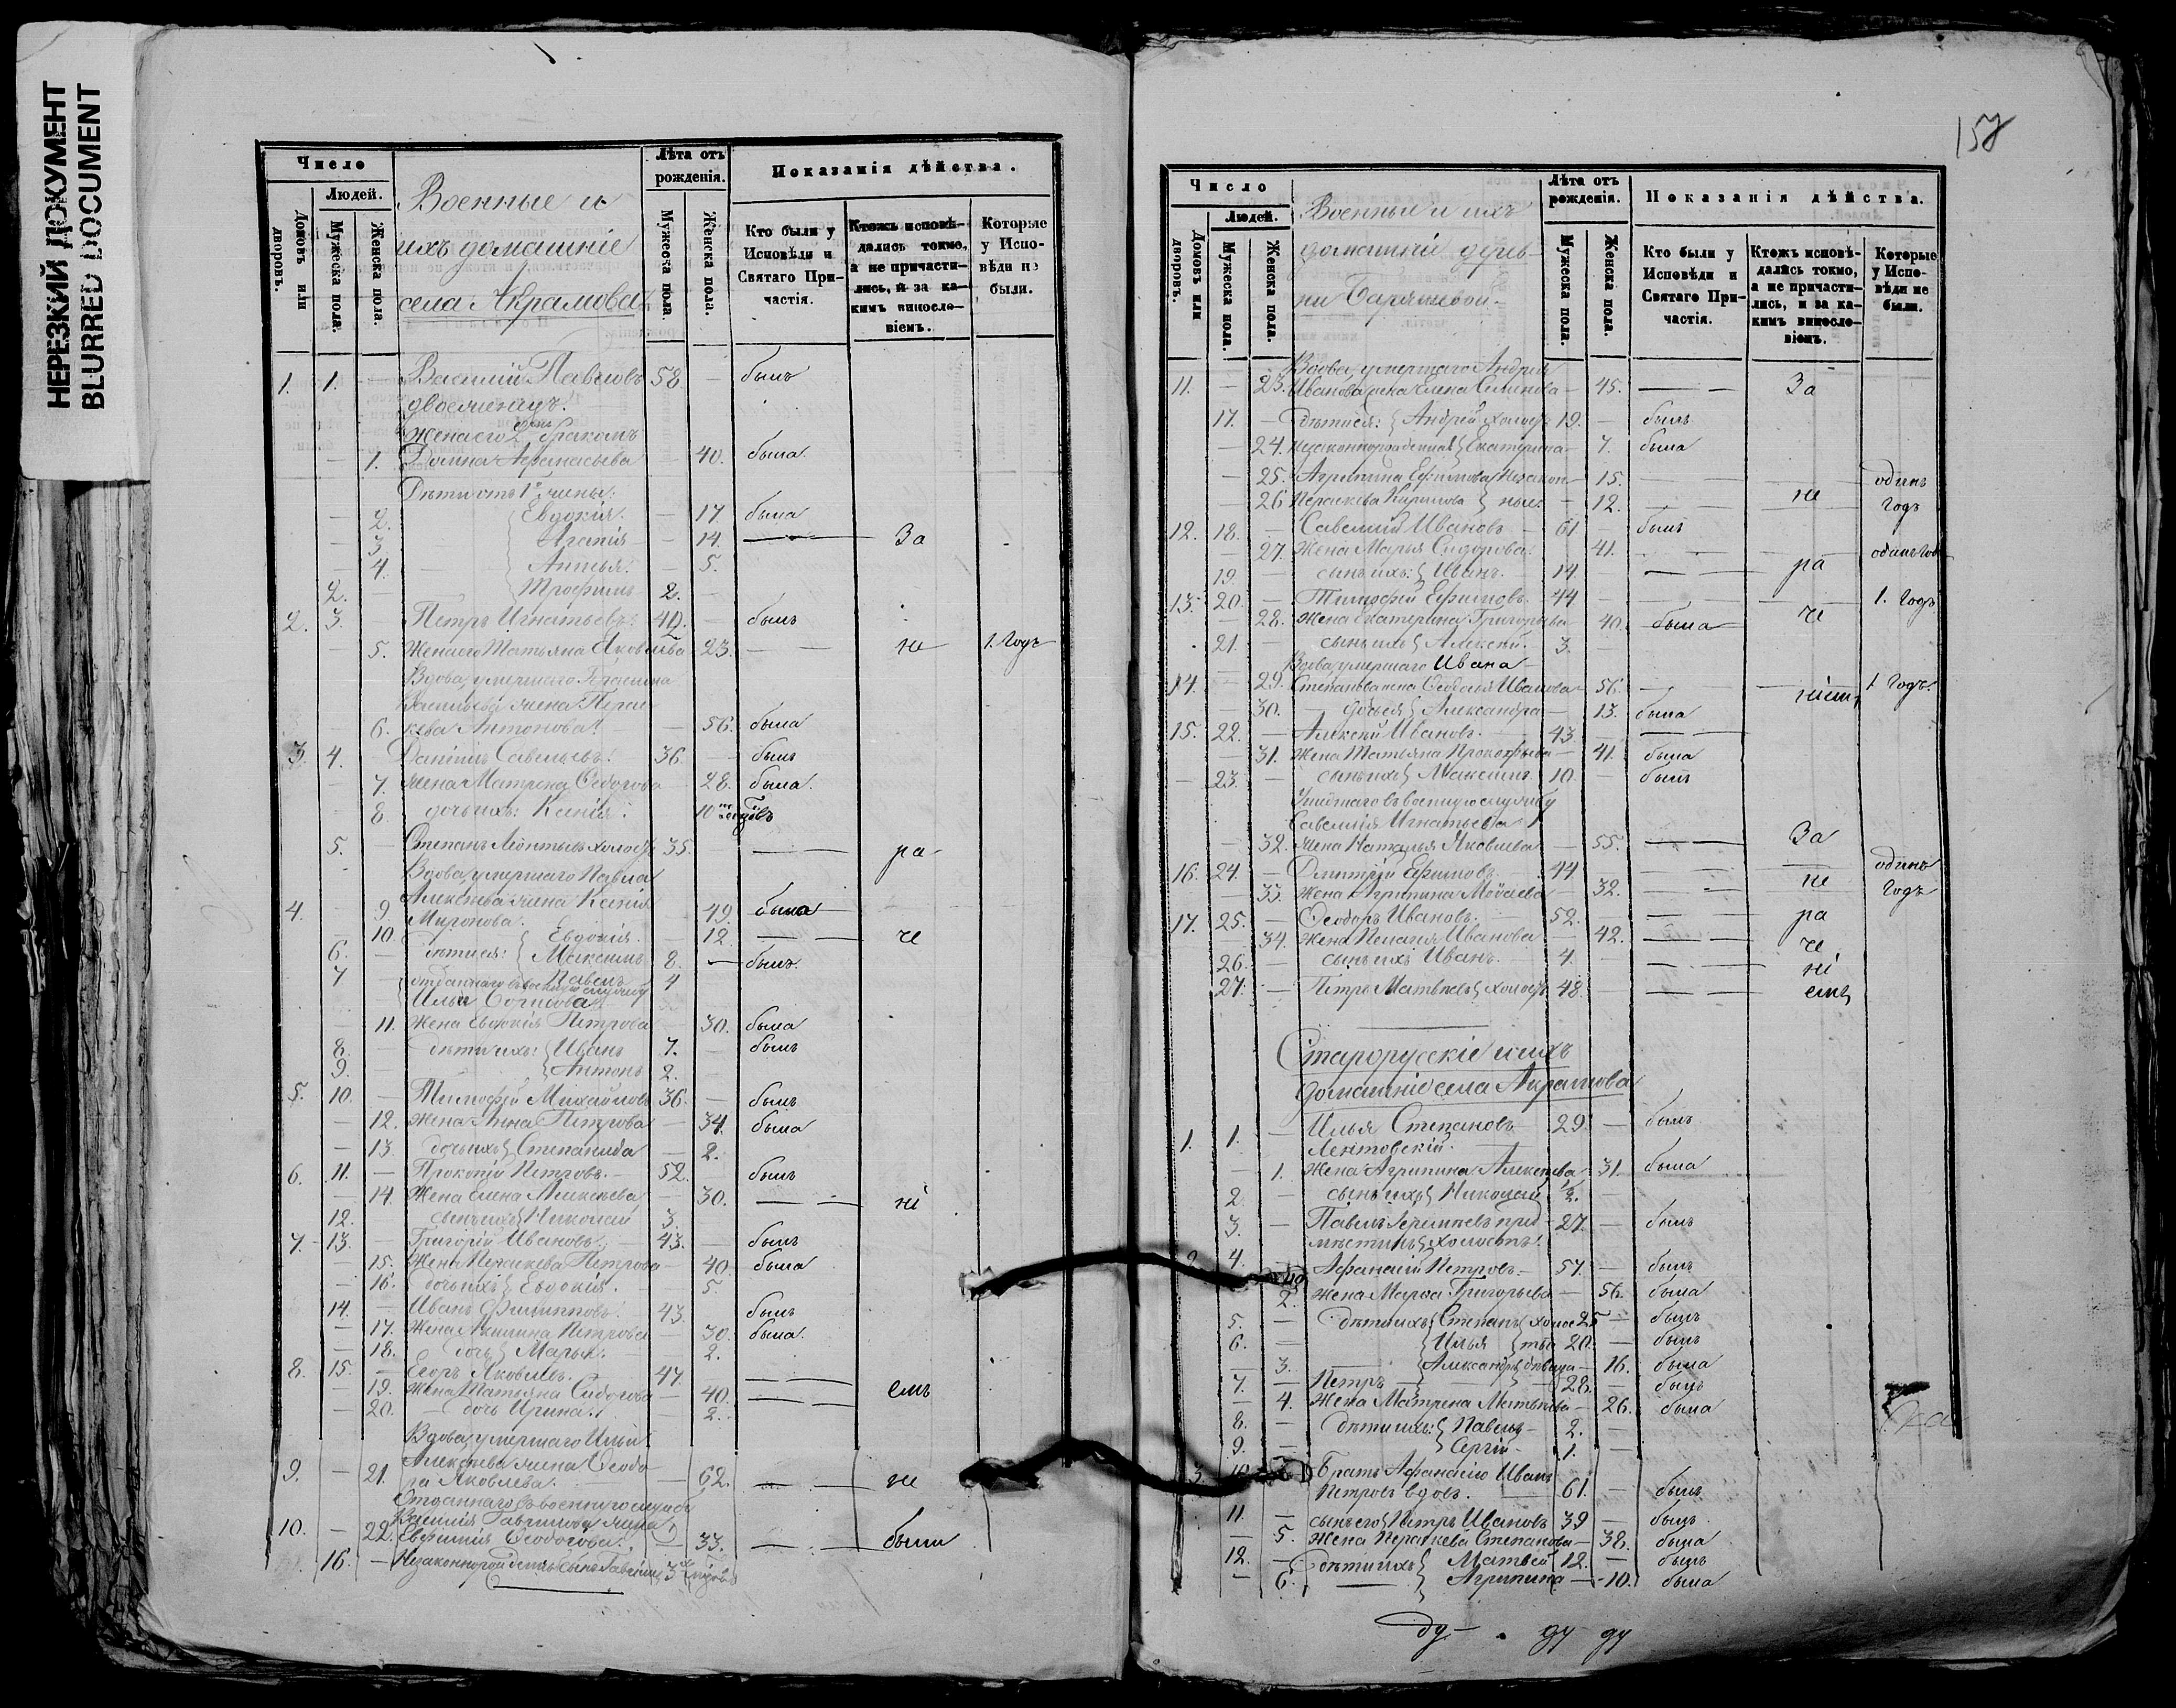 НЕРЕЗКИЙ ДОКУМЕНТ
BLURRED DOCUMENT
Число
Людей.
Домовъ или дворовъ.
Мужеска пола.
Женска пола.
Военные и
ихъ домашніе
села Акрамова
Лѣта отъ рожденія.
Мужеска пола.
Женска пола.
Показанія дѣйства.
Кто были у Исповѣди и Святаго Причастія.
Ктожъ исповѣдались токмо, а не причастились, и за какимъ винословіемъ.
Которые у Исповѣди не были.
1. 1. — Василій Павловъ 58 — былъ
двоеженецъ.
Жена его 2 бракомъ
— 1. Домна Афанасьева — 40. была
Дѣти отъ 1й жены:
— 2. Евдокія. — 17. была
— 3 Агапія — 14. — За
— 4. — 5.
2. — Трофимъ 2. —
2. 3. — Петръ Игнатьевъ. 42. — былъ
— 5. Жена его Татьяна Яковлева 23. — не 1. годъ
Вдова, умершаго Герасима
Васильева жена Парас-
6. кева Антонова. — 56. была
3. 4. — Даніилъ Савельевъ. 36. — былъ
7. жена Матрена Ѳедорова — 28. была.
8. дочь ихъ: Ксенія. 10
5. — Степанъ Леонтьевъ холостъ 35. — ра-
Вдова, умершаго Павла
Алексѣева жена Ксенія
4. — 9. Миронова. — 49. была
— 10. Евдокія. — 12. — че
6. — дѣти ея: Максимъ 8. — былъ.
7 — Павелъ 4
отданнаго въ военную службу
Ильи
— 11. Жена Евдокія Петрова — 30. была
8. — дѣти ихъ: Иванъ 7. — былъ
9. — Антонъ 2. —
5. 10. — Тимофей Михайловъ 36. — былъ
— 12. Жена Анна Петрова — 34. была
— 13. дочь ихъ Степанида — 2.
6. 11. — Прокопій Петровъ. — 52. былъ
— 14. Жена Елена Алексѣева — 30. — ні
12. — сынъ ихъ Николай 3.
7. 13. — Григорій Ивановъ. 43. — былъ
— 15. Жена Параскева Петрова — 40 была
— 16. дочь ихъ Евдокія. — 5.
14. — Иванъ Филипповъ. 43. былъ
— 17. Жена Акилина Петрова — 30. была.
— 18. дочь Марья. — 2.
8. 15. — Егоръ Яковлевъ. 47.
— 19. Жена Татьяна Сидорова — 40. — емъ
— 20. — дочь Ирина. — 2.
Вдова, умершаго Ильи
Алексѣева жена Ѳеодо-
9. — 21. ра Яковлева. — 62. — не
Отданнаго въ военную службу
Василія Гаврилова жена
10. — 22. Евфимія Ѳеодорова. — 33. — были
16. — Незаконнорожденный сынъ 3
158
Число
Людей.
Домовъ или дворовъ.
Мужеска пола.
Женска пола.
Военные и ихъ
домашніе дерев-
ни
Лѣта отъ рожденія.
Мужеска пола.
Женска пола.
Показанія дѣйства.
Кто были у Исповѣди и Святаго Причастія.
Ктожъ исповѣдались токмо, а не причастились, и за какимъ винословіемъ.
Которые у Исповѣди не были.
Вдова, умершаго Андрея
11. — 23. Иванова жена Елена Семенова — 45. — За
17. — дѣти ея: Андрей холостъ 19. — былъ
— 24. незаконнорожденная Екатерина — 7. была
— 25. Агрипина Ефимова незакон- 15. — одинъ
— 26 Параскева Кирилова ныя. — 12. — не годъ
12. 18. — Савелій Ивановъ — 61 — былъ
— 27. Жена Марья Сидорова. 41. — одинъ годъ
19. — сынъ ихъ: Иванъ. — 14. — ра
13. 20. — Тимофей Ефимовъ. 44 — 1. годъ
— 28. Жена Екатерина Григорьева 40. была че
21. — сынъ ихъ Алексѣй. 3. —
Вдова, умершаго Ивана
14. — 29. Степанова жена Ивановна 56. — ніемъ 1 годъ.
— 30. — дочь ея Александра — 13. была
15. 22. — Алексѣй Ивановъ. — 43. —
— 31. Жена Татьяна Прокофьева — 41. была
— 23. — сынъ ихъ Максимъ 10. — былъ
въ военную службу
Савелія Игнатьева
— 32. жена Наталья Яковлева — 55. — За
16. 24. — Дмитрій Ефимовъ. 44 — одинъ
— 33. Жена Агрипина Мойсѣева 32. — не годъ
17. 25. — Ѳеодоръ Ивановъ. 52. — ра
— 34. Жена Пелагея Иванова 42. — че
26. — сынъ ихъ Иванъ. 4. — ні
27. — Петръ Матвѣевъ холостъ 48. — емъ
Старорусскіе и ихъ
домашніе села Акрамова
1. 1. — Илья Степановъ 29. — былъ
Лентовскій.
— 1. Жена Агрипина Алексѣева 31. была
2. — сынъ ихъ Николай 1/2.
3. — Павелъ 27. — былъ
холостъ.
4. Афанасій Петровъ. — 57. — былъ
2. Жена Марѳа Григорьева — 56. была
5. — дѣти ихъ: Степанъ холос 25 — былъ
6. — Илья ты 20. — былъ
— 3. — Александра дѣвица — 16. была
7. — Петръ — 28. — былъ
— 4. Жена Матрена Матвѣева — 26. была
8. — дѣти ихъ: Павелъ — 2. —
9. — Сергій — 1. —
3. 10. Братъ Афанасію Иванъ
Петровъ вдовъ. 61. — былъ
11. — сынъ его Петръ Ивановъ 39 — былъ.
— 5. Жена Параскева Степанова — 38. была
12. — дѣти ихъ Матвей 12. — былъ
— 6. — Агрипина — 10. была